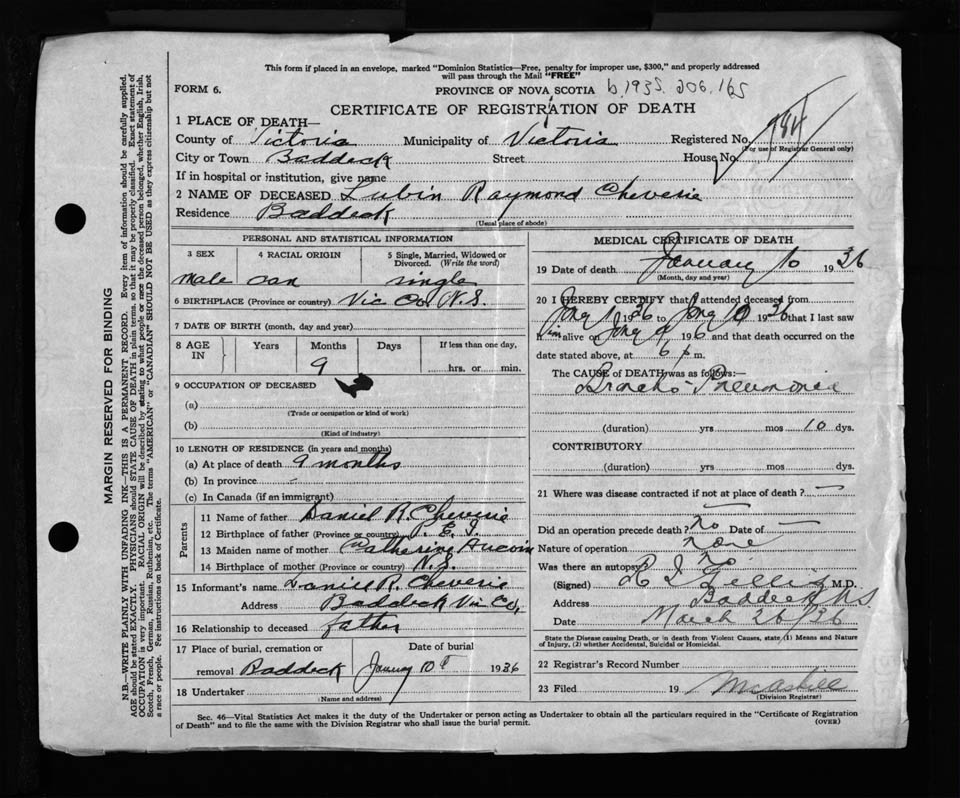 This form if placed in an envelope, marked "Dominion Statistics—Free, penalty for improper use, $300," and properly addressed
will pass through the Mail "FREE"
FORM 6.
PROVINCE OF NOVA SCOTIA b. 1935. 206. 165
CERTIFICATE OF REGISTRATION OF DEATH
1 PLACE OF DEATH—
County of Victoria Municipality of Victoria Registered No.
(For use of Registrar General only)
City or Town Baddeck Street House No.
If in hospital or institution, give name
2 NAME OF DECEASED Lubin Raymond Cheverie
Residence Baddeck
(Usual place of abode)
PERSONAL AND STATISTICAL INFORMATION
3 SEX 4 RACIAL ORIGIN 5 Single, Married, Widowed or
Divorced. (Write the word)
male can single
6 BIRTHPLACE (Province or country) Vic Co N.S.
7 DATE OF BIRTH (month, day and year)
8 AGE IN Years Months Days If less than one day,
9 hrs. or min.
9 OCCUPATION OF DECEASED
(a)
(Trade or occupation or kind of work)
(b)
(Kind of industry)
10 LENGTH OF RESIDENCE (in years and months)
(a) At place of death 9 months
(b) In province -
(c) In Canada (if an immigrant)
Parents
11 Name of father Daniel R. Cheverie
12 Birthplace of father (Province or country) P.E.I.
13 Maiden name of mother Catherine Aucoin
14 Birthplace of mother (Province or country) N.S.
15 Informant's name Daniel R. Cheverie
Address Baddeck Vic Co,
16 Relationship to deceased father
17 Place of burial, cremation or Date of burial
removal Baddeck January 10 1936
18 Undertaker
(Name and address)
MEDICAL CERTIFICATE OF DEATH
19 Date of death January 10 1936
(Month, day and year)
20 I HEREBY CERTIFY that I attended deceased from
Jany 1 1936 to Jany 10 1936 that I last saw
him alive on Jany 9 1936 and that death occurred on the
date stated above, at 6 p m.
The CAUSE of DEATH was as follows:—
Broncho-Pneumonia
(duration) yrs mos 10 dys.
CONTRIBUTORY
(duration) yrs mos dys.
21 Where was disease contracted if not at place of death? —
Did an operation precede death? no Date of —
Nature of operation none
Was there an autopsy? no
(Signed) C I Gillis M.D.
Address Baddeck N.S.
Date March 26/36
State the Disease causing Death, or in death from Violent Causes, state (1) Means and Nature
of Injury, (2) whether Accidental, Suicidal or Homicidal.
22 Registrar's Record Number
23 Filed 19 McAskill
(Division Registrar)
Sec. 46—Vital Statistics Act makes it the duty of the Undertaker or person acting as Undertaker to obtain all the particulars required in the "Certificate of Registration
of Death" and to file the same with the Division Registrar who shall issue the burial permit. (OVER)
MARGIN RESERVED FOR BINDING
N.B.—WRITE PLAINLY WITH UNFADING INK—THIS IS A PERMANENT RECORD. Every item of information should be carefully supplied.
AGE should be stated EXACTLY. PHYSICIANS should STATE CAUSE OF DEATH in plain terms, so that it may be properly classified. Exact statement of
OCCUPATION is very important. RACIAL ORIGIN will be described by stating to what people or race the deceased person belonged, whether English, Irish,
Scotch, French, German, Russian, Ruthenian, etc. The terms "AMERICAN" or "CANADIAN" SHOULD NOT BE USED as they express citizenship but not
a race or people. Fee instructions on back of Certificate.